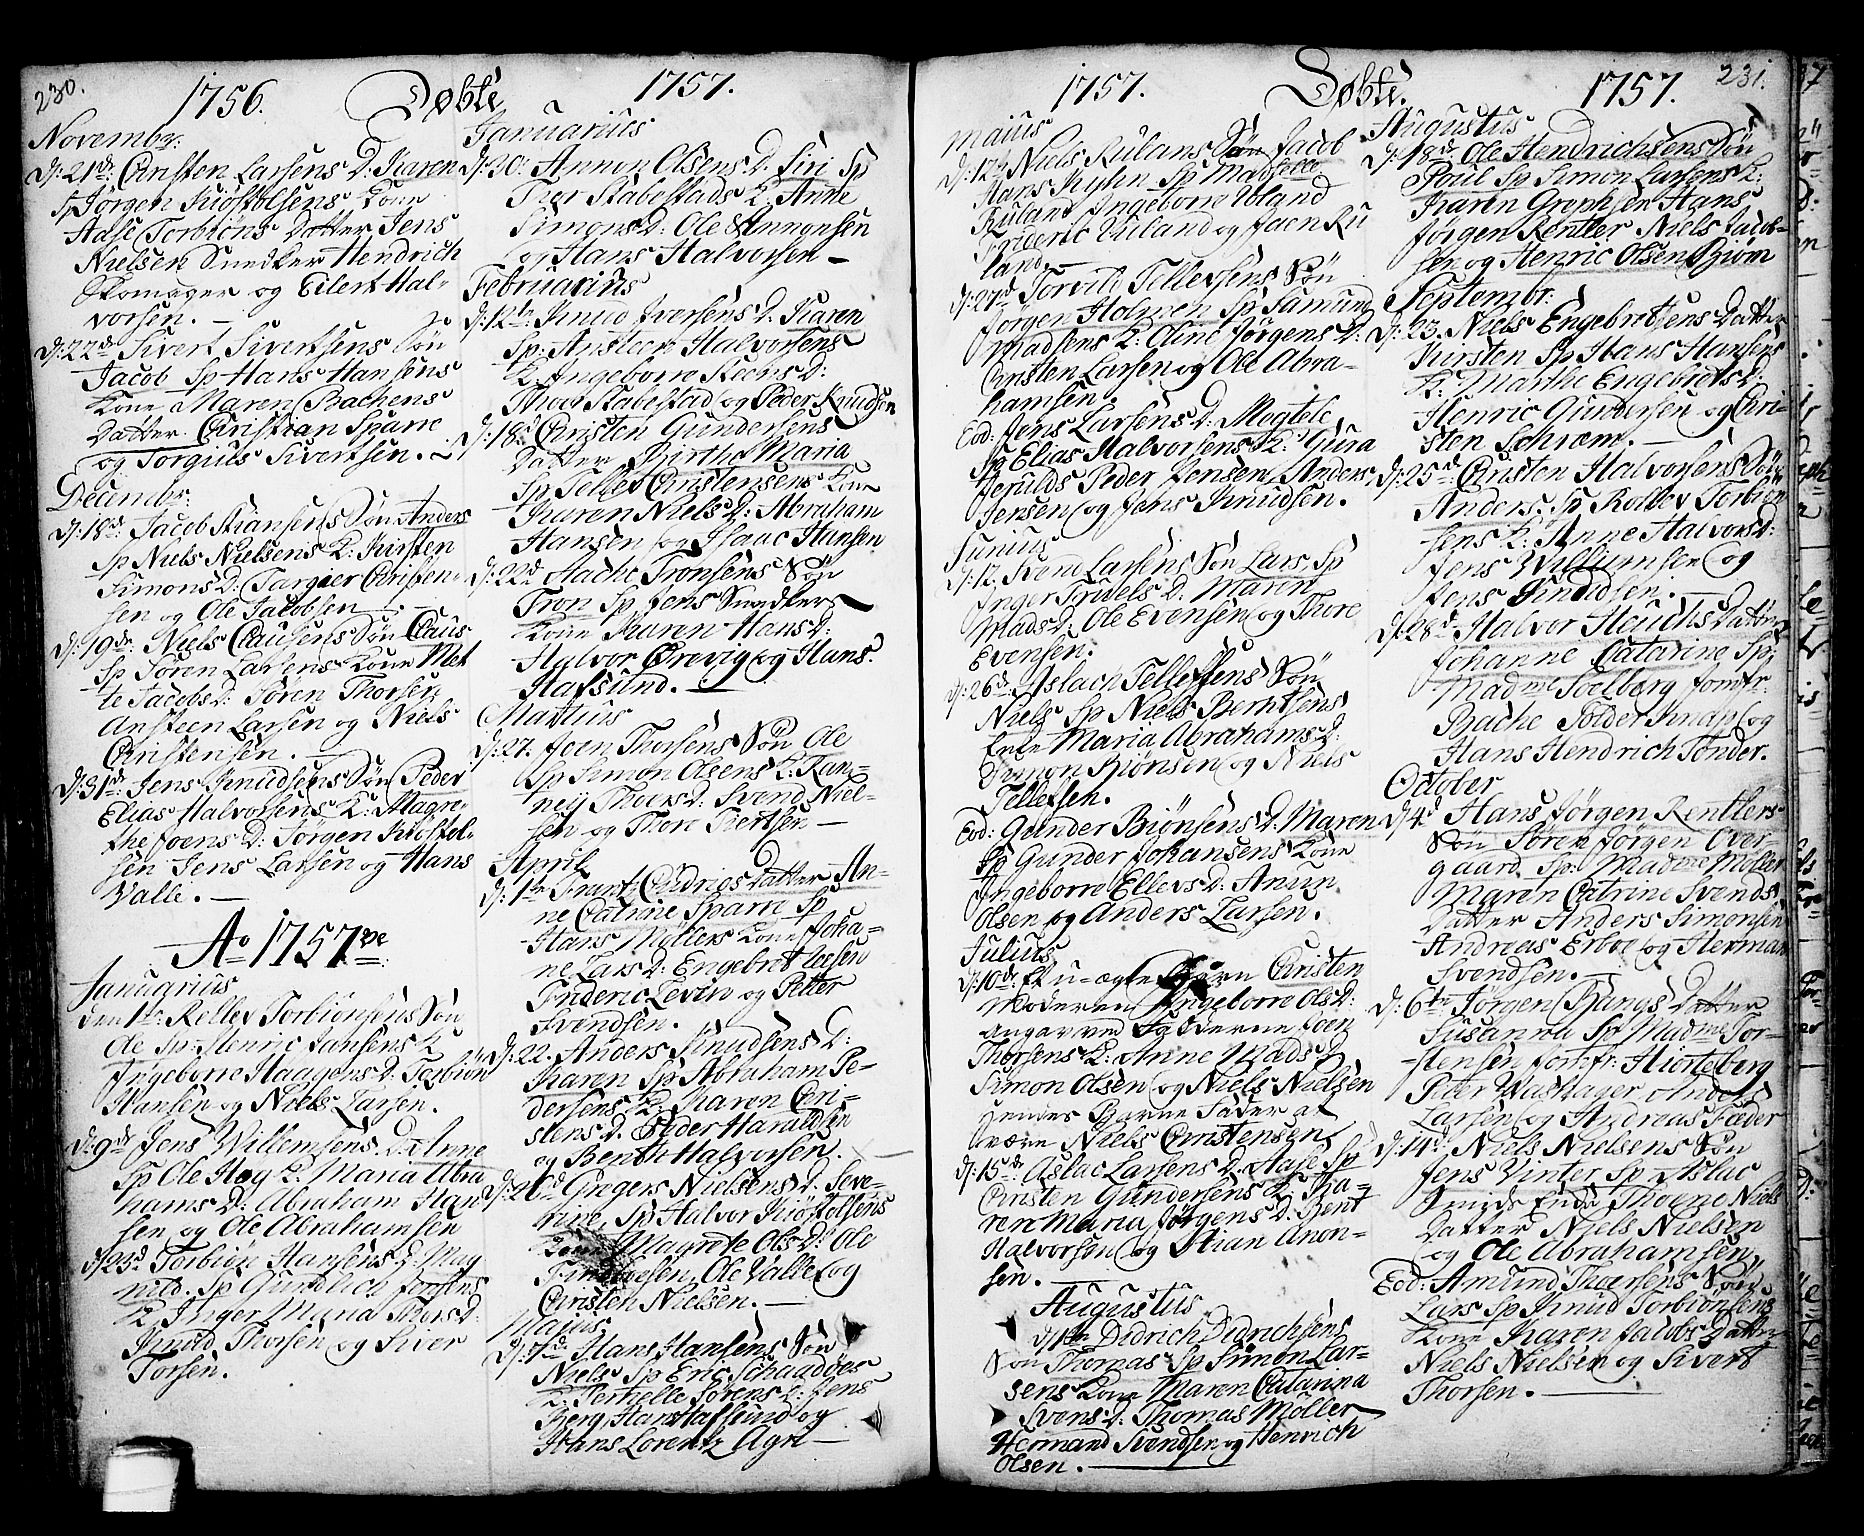 230.
1756. Døbte 1757.
November:
d: 21de Christen Larsens D. Karen
Sp Jørgen Kiøstolsens Kone
Aase Torbiøns Datter Jens
Nielsen Snedker Hendrich
Skomager og Eilert Hal-
vorsen. —
d: 22de Sivert Sivertsens Søn
Jacob Sp Hans Hansens
Kone Maren Bachens
Datter Christian Sparre
og Torgius Sivertsen.
Decembr:
d: 18de Jacob Stiansens Søn Anders
Sp Niels Nielsens K: Kirsten
Simons D: Targier Christen-
sen og Ole Jacobsen
d: 19de Niels Clausens Søn Claus
Sp Søren Larsens Kone Met
te Jacobs D: Søren Thorsen
Ansteen Larsen og Niels
Christensen. —
d: 31de Jens Knudsens Søn Peder
Elias Halvorsens K: Magre-
the Joens D: Jørgen Kiøstol-
sen Jens Larsen og Hans
Valle. —
Ao 1757de
Januarius
den 1te Rollev Torbiønsens Søn
Ole Sp: Henric Jansens K
Ingeborre Haagens D. Torbiøn
Hansen og Niels Larsen.
d: 9de Jens Willemsens D. Anne
Sp Ole Høg K. Maria Abra
hams D: Abraham Han
sen og Ole Abrahamsen
d: 23d Torbiøn Hansens D. Mag
nild. Sp Gundlich Jensens
K. Inger Maria Thors D:
Knud Thorsen og Siver
Torsen.
Januarius
d: 30: Ammon Olsens D. Siri Sp
Thor Stabestads K: Anne
Simons D: Ole Ammonsen
og Hans Halvorsen —
Februarius
d: 12te Knud Iversens D. Karen
Sp: Ansteen Halvorsens
K. Ingeborre Steens D:
Thor Stabestad og Peder Knudsen
d: 18d Christen Gundersens
Datter Birthe Maria
Sp Tellev Christensens Kone
Karen Niels D: Abraham
Hansen og Isaac Hansen
d: 22d Aache Tronsens Søn
Tron Sp Jens Snedkers
Kone Karen Hans D:
Halvor Ørevig og Hans
Hafsund. —
Martius
d: 27. Joen Thorsens Søn Ole
Sp Simon Olsens K: Ran-
neij Thoers D: Svend Niel-
sen og Thore Sivertsen —
April
d: 1te Frantz Cudrios Datter An-
ne Catrine Sparre Sp
Hans Møllers Kone Joha-
ne Lars D: Engebret Joensen
Frideric Levin og Petter
Svendsen.
d: 22. Anders Knudsens D:
Karen Sp Abraham Pe-
dersens K. Karen Chri-
stens D. Peder Haraldsen
og Benth Halvorsen.
d: 26d Gregers Nielsens D. Seve-
rine, Sp Halvor Kiøstolsens
Kone Magrete Ols D: Ole
Ole Valle og
Christen Nielsen. —
Majus
d: 7de Hans Hansens Søn
Niels Sp Eric Schaadøes
K. Pernelle Sørens D: Jens
Berg, Hans Hafsund og
Hans Lorentz Agri —
1757. Døbte. 1757. 231.
Maius
d: 12te Niels Rulans Søn Jacob
Hans Kyhn Sp Madselle
Ruland Ingeborre Ubland
Frideric Ruland og Joen Ru
land. —
d: 27d Torvild Tellefsens Søn
Jørgen Holmen Sp Samund
Madsens K. Oline Jørgens D:
Christen Larsen og Ole Abra-
hamsen.
Eod: Jens Larsens D: Magtele
Sp Elias Halvorsens K: Gura
Jerulds Peder Jensen Anders
Jensen og Jens Knudsen.
Junius
d: 12. Svend Larsens Søn Lars, Sp
Inger Truels D. Maren
Mads D: Ole Evensen og Thore
Evensen.
d: 26d Aslach Tellefsens Søn
Niels Sp Niels Berntsens
Enke Maria Abrahams D:
Simon Biønsen og Niels
Tellefsen.
Eod: Gunder Biønsens D. Maren
Sp Gunder Johansens Kone
Ingeborre Ellevs D: Anun
Olsen og Anders Larsen.
Julius
d: 10de Et u-ægte Barn Christen
Moderen Ingeborre Ols D:
angav ved Fadderne Joen
Thorsens K: Anne Mads D
Simon Olsen og Niels Nielsen
hendes Barne Fader at
være Niels Christensen
d: 15de Aslac Larsens D: Aase Sp
Christen Gundersens K Ka-
ren Maria Jørgens D: Bent
Halvorsen og Stian Amon-
sen. —
Augustus
d: 1te Didrich Didrichsens
Søn Thomas Sp Simon Lar-
sens Kone Maren Catarina
Svens D: Thomas Møller
Hermand Svendsen og Henrich
Olsen.
Augustus
d: 18de Ole Hendrichsens Søn
Poul Sp Simon Larsens K:
Karen Hans
Jørgen Rentler Niels Jacob-
sen og Henric Olsen Biøm
Septembr:
d: 23. Niels Engebretsens Datter
Kirsten Sp Hans Hansens
K: Marthe Engebrets D:
Henric Gundersen og Chri-
sten Schram. —
d: 25d Christen Halvorsens Søn
Anders Sp Rollev Torbiøn
sens K: Anne Halvors D:
Jens Williumsen og
Jens Knudsen. —
d: 28d Halvor Heuchs Datter
Johanne Catarine Sp:
Madme Soelberg Jomfr.
Bache Tolder Knap og
Hans Hendrich Tønder.
October
d: 4d Hans Jørgen Rentlers
Søn Søren Jørgen Over-
gaard Sp: Madme Møller
Maren Catrine Svends
Datter Anders Simonsen
Andreas Erboe og Herman
Svendsen. —
d: 6te Jørgen Bangs Datter
Susanna Sp Madme Tor-
stensen Jomfr: Hiorteberg
Peter Wasstager Anders
Larsen og Andreas Fæder
d: 14d. Niels Nielsens Søn
Jens Vinter Sp Aslac
Smids Enke Thorne Niels
Datter Niels Nielsen
og Ole Abrahamsen,
Eod: Amund Thorsens Søn
Lars Sp Knud Torbiønsens
Kone Karen Jacobs Datter
Niels Nielsen og Sivert
Thorsen. —